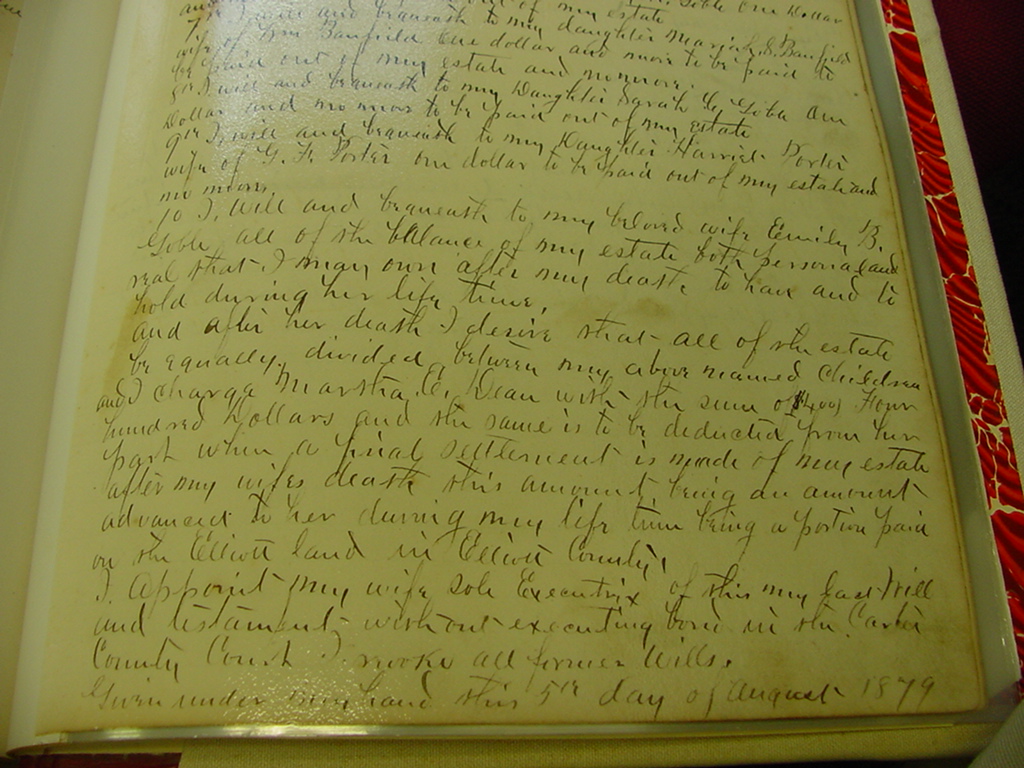 out of my estate Goble One Dollar
7th I will and bequeath to my daughter Mariah S. Banfield
wife of Wm Banfield One dollar and more to be paid to
be paid out of my estate and no more.
8th I will and bequeath to my Daughter Sarah Goble One
Dollar and no more to be paid out of my estate
9th I will and bequeath to my Daughter Harriet Porter
wife of G. F. Porter one dollar to be paid out of my estate and
no more.
10 I, will and bequeath to my beloved wife Emily B.
Goble all of the ballance of my estate both personal and
real that I may own after my death to have and to
hold during her life time,
and after her death I desire that all of the estate
be equally divided between my above named children
and I charge Martha Dean with the sum of $400) Four
hundred Dollars and the same is to be deducted from her
part when a final settlement is made of my estate
after my wifes death this amount being an amount
advanced to her during my life time being a portion paid
on the Elliott land in Elliott County,
I. Appoint my wife sole Executrix of this my last Will
and testament without executing bond in the Carter
County Court I revoke all former Wills.
Given under my hand this 5th day of August 1879